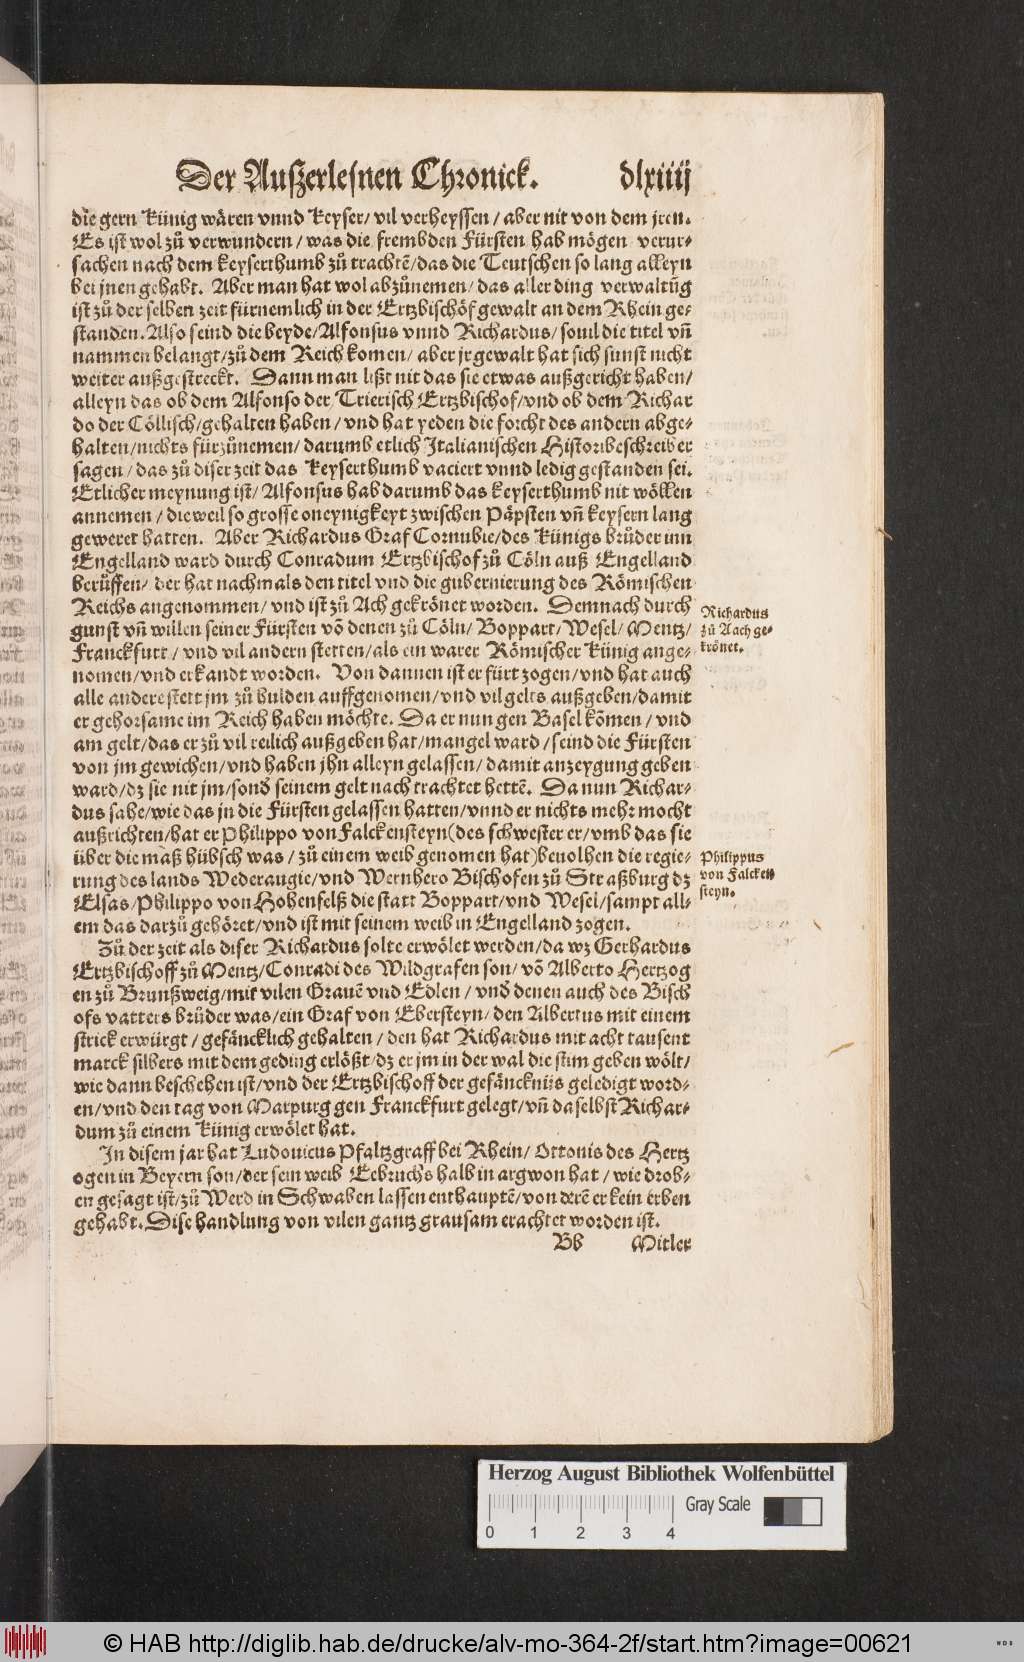 Der Außerlesnen Chronick. dlxiiij
die gern Künig wären vnnd Keyser/ vil verheyssen/ aber nit von dem jren.
Es ist wol zů verwundern/ was die frembden Fürsten hab mögen verur-
sachen nach dem keyserthumb zů trachtē/ das die Teutschen so lang alleyn
bei jnen gehabt. Aber man hat wol abzůnemen/ das aller ding verwaltūg
ist zů der selben zeit fürnemlich in der Ertzbischöf gewalt an dem Rhein ge-
standen. Also seind die beyde/ Alfonsus vnnd Richardus/ souil die titel vñ
nammen belangt/ zů dem Reich komen/ aber jr gewalt hat sich sunst nicht
weiter außgestreckt. Dann man lißt nit das sie etwas außgericht haben/
alleyn das ob dem Alfonso der Trierisch Ertzbischof/ vnd ob dem Richar
do der Cöllisch/ gehalten haben/ vnd hat yeden die forcht des andern abge-
halten/ nichts fürzůnemen/ darumb etlich Italianischen Historibeschreiber
sagen/ das zů diser zeit das Keyserthumb vaciert vnnd ledig gestanden sei.
Etlicher meynung ist/ Alfonsus hab darumb das keyserthumb nit wöllen
annemen/ dieweil so grosse oneynigkeyt zwischen Päpsten vñ keysern lang
geweret hatten. Aber Richardus Graf Cornubie/ des Künigs brůder inn
Engelland ward durch Conradum Ertzbischof zů Cöln auß Engelland
berůffen/ der hat nachmals den titel vnd die gubernierung des Römischen
Reichs angenommen/ vnd ist zů Ach gekrönet worden. Demnach durch
gunst vñ willen seiner Fürsten vō denen zů Cöln/ Boppart/ Wesel/ Mentz/
Franckfurt/ vnd vil andern stetten/ als ein warer Römischer Künig ange-
nomen/ vnd erkandt worden. Von dannen ist er fürt zogen/ vnd hat auch
alle andere stett jm zů hulden auffgenomen/ vnd vil gelts außgeben/ damit
er gehorsame im Reich haben möchte. Da er nun gen Basel kōmen/ vnd
am gelt/ das er zů vil reilich außgeben hat/ mangel ward/ seind die Fürsten
von jm gewichen/ vnd haben jhn alleyn gelassen/ damit anzeygung geben
ward/ dz sie nit jm/ sond̓ seinem gelt nach trachtet hettē. Da nun Richar-
dus sahe/ wie das jn die Fürsten gelassen hatten/ vnnd er nichts mehr mocht
außrichten/ hat er Philippo von Falckensteyn (des schwester er/ vmb das sie
über die maß hübsch was/ zů einem weib genomen hat) beuolhen die regie-
rung des lands Wederaugie/ vnd Wernhero Bischofen zů Straßburg dz
Elsas/ Philippo von Hohenfelß die statt Boppart/ vnd Wesel/ sampt all-
em das darzů gehöret/ vnd ist mit seinem weib in Engelland zogen.
Zů der zeit als diser Richardus solte erwölet werden/ da wz Gerhardus
Ertzbischoff zů Mentz/ Conradi des Wildgrafen son/ vō Alberto Hertzog
en zů Brunßweig/ mit vilen Grauē vnd Edlen/ vnd̓ denen auch des Bisch
ofs vatters brůder was/ ein Graf von Ebersteyn/ den Albertus mit einem
strick erwürgt/ gefäncklich gehalten/ den hat Richardus mit acht tausent
marck silbers mit dem geding erlößt/ dz er jm in der wal die stim geben wölt/
wie dann beschehen ist/ vnd der Ertzbischoff der gefäncknijs geledigt word-
en/ vnd den tag von Marpurg gen Franckfurt gelegt/ vñ daselbst Richar-
dum zů einem Künig erwölet hat.
In disem jar hat Ludouicus Pfaltzgraff bei Rhein/ Ottonis des Hertz
ogen in Beyern son/ der sein weib Eebruchs halb in argwon hat/ wie drob-
en gesagt ist/ zů Werd in Schwaben lassen enthauptē/ von derē er kein erben
gehabt. Dise handlung von vilen gantz grausam erachtet worden ist.
Bb Mitler
Richardus
zů Aach ge-
krönet.
Philippus
von Falcken
steyn.
Herzog August Bibliothek Wolfenbüttel
Gray Scale
0 1 2 3 4
© HAB http://diglib.hab.de/drucke/alv-mo-364-2f/start.htm?image=00621